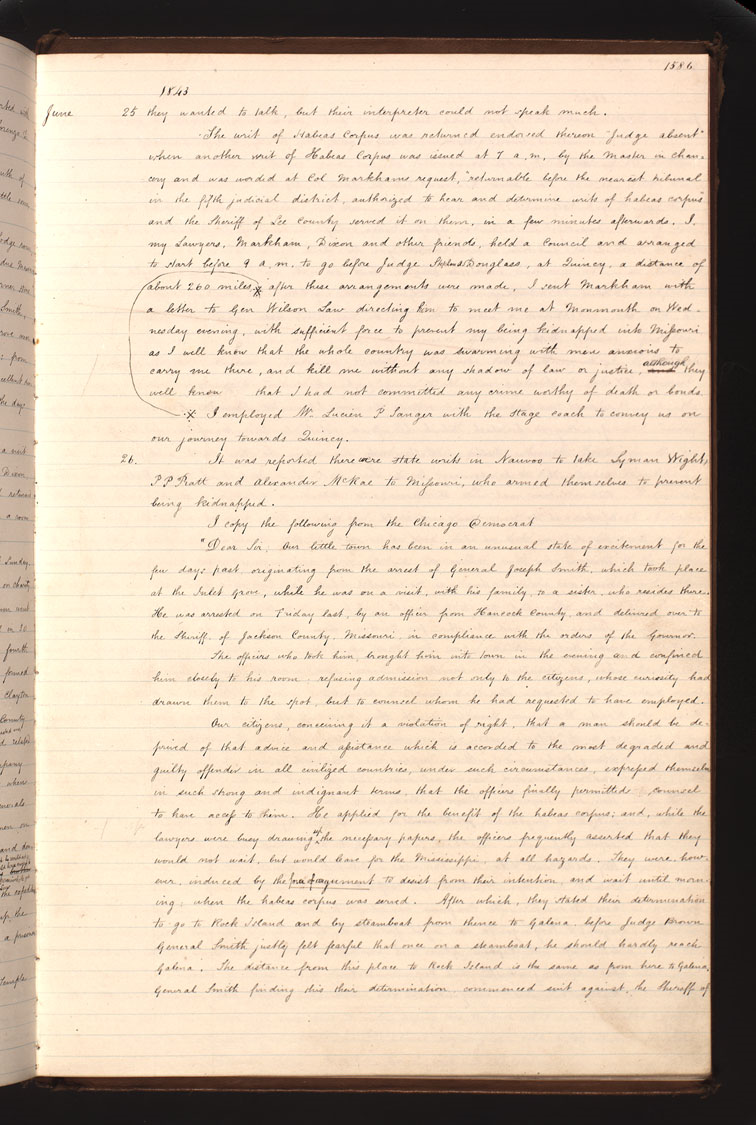 1586
1843
June 25 they wanted to talk, but their interpreter could not speak much.
The writ of Habeas Corpus was returned endorsed thereon "Judge absent"
when another writ of Habeas Corpus was issued at 7 a.m. by the Master in chan-
cery and was worded at Col Markhams request, "returnable before the nearest tribunal
in the fifth judicial district, authorized to hear and determine writs of habeas corpus"
and the Sheriff of Lee County served it on them, in a few minutes afterwards. I,
my Lawyers, Markham, Dixon and other friends, held a Council and arranged
to start before 9 a.m. to go before Judge Stephen A Douglass, at Quincy, a distance of
about 260 miles, * after these arrangements were made, I sent Markham with
a letter to Gen Wilson Law directing him to meet me at Monmouth on Wed-
nesday evening, with sufficient force to prevent my being kidnapped into Missouri
as I well know that the whole country was swarming with men anxious to
carry me there, and kill me without any shadow of law or justice, although they
well know that I had not committed any crime worthy of death or bonds.
* I employed Mr Lucien P Sanger with the stage coach to convey us on
our journey towards Quincy.
26. It was reported there were state writs in Nauvoo to take Lyman Wight,
P P Pratt and Alexander McRae to Missouri, who armed themselves to prevent
being kidnapped.
I copy the following from the Chicago Democrat
"Dear Sir, Our little town has been in an unusual state of excitement for the
few days past, originating from the arrest of General Joseph Smith, which took place
at the Inlet Grove, while he was on a visit, with his family, to a sister, who resides there.
He was arrested on Friday last, by an officer from Hancock County, and delivred over to
the Sheriff, of Jackson County, Missouri, in compliance with the orders of the Governor.
The officers who took him, brought him into town in the evening and confined
him closely to his room, refusing admission not only to the citizens, whose curiosity had
drawn them to the spot, but to counsel whom he had requested to have employed.
Our citizens, conceiving it a violation of right, that a man should be de-
prived of that advice and assistance which is accorded to the most degraded and
guilty offender in all civilized countries, under such circumstances, expressed themselves
in such strong and indignant terms, that the officers finally permitted counsel
to have access to him. He applied for the benefit of the habeas corpus; and, while the
lawyers were busy drawing up the necessary papers, the officers frequently asserted that they
would not wait, but would leave for the Mississippi, at all hazards. They were how-
ever, induced by the force of argument to desist from their intention, and wait until morn-
ing, when the habeas corpus was served. After which, they stated their determination
to go to Rock Island and by steamboat from thence to Galena, before Judge Brown
General Smith justly felt fearful that once on a steamboat, he should hardly reach
Galena. The distance from this place to Rock Island is the same as from here to Galena,
General Smith finding this their determination, commenced suit against the Sheriff of